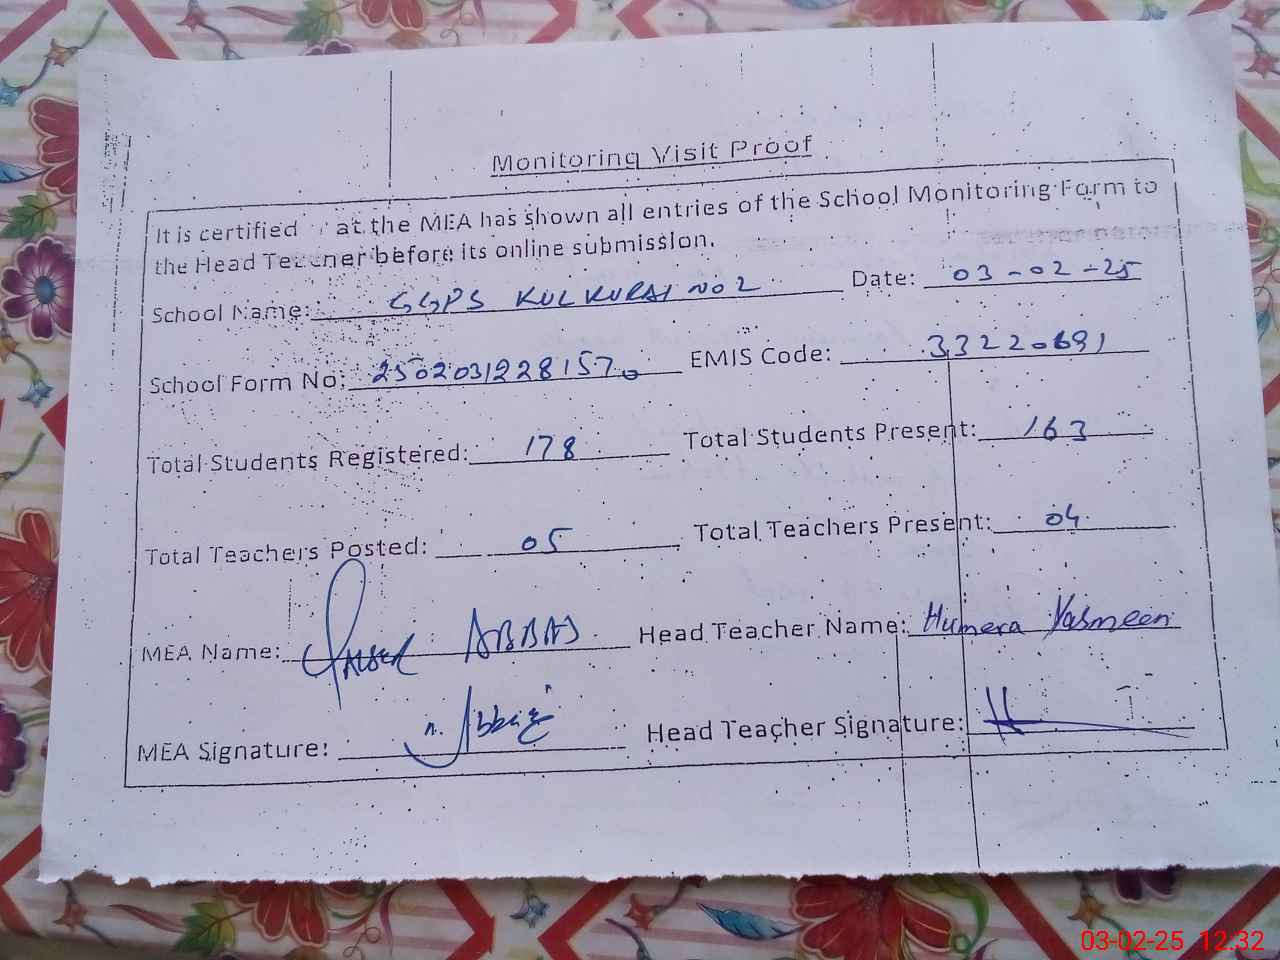 Monitoring Visit Proof
It is certified at the MEA has shown all entries of the School Monitoring Form to
the Head Teacher before its online submission.
School Name: GGPS KULKURAI NO 2 Date: 03-02-25
School Form No: 2502031228157 EMIS Code: 33220691
Total Students Registered: 178 Total Students Present: 163
Total Teachers Posted: 05 Total Teachers Present: 04
MEA Name: ABBAS Head Teacher Name: Humera Yasmeen
MEA Signature: Head Teacher Signature:
03-02-25 12:32